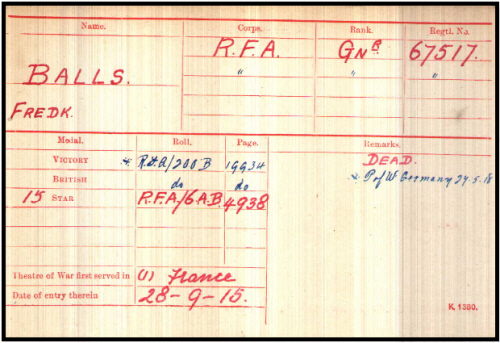 Name. Corps. Rank. Regtl. No.
R.F.A. GNR 67517.
BALLS. " "
FREDK.
Medal. Roll. Page. Remarks.
VICTORY * R.F.A/200B 19934 DEAD.
BRITISH do do * P of W Germany 29.5.18
15 STAR R.F.A./6A.B. 4938
Theatre of War first served in (1) France
Date of entry therein 28-9-15.
K. 1380.